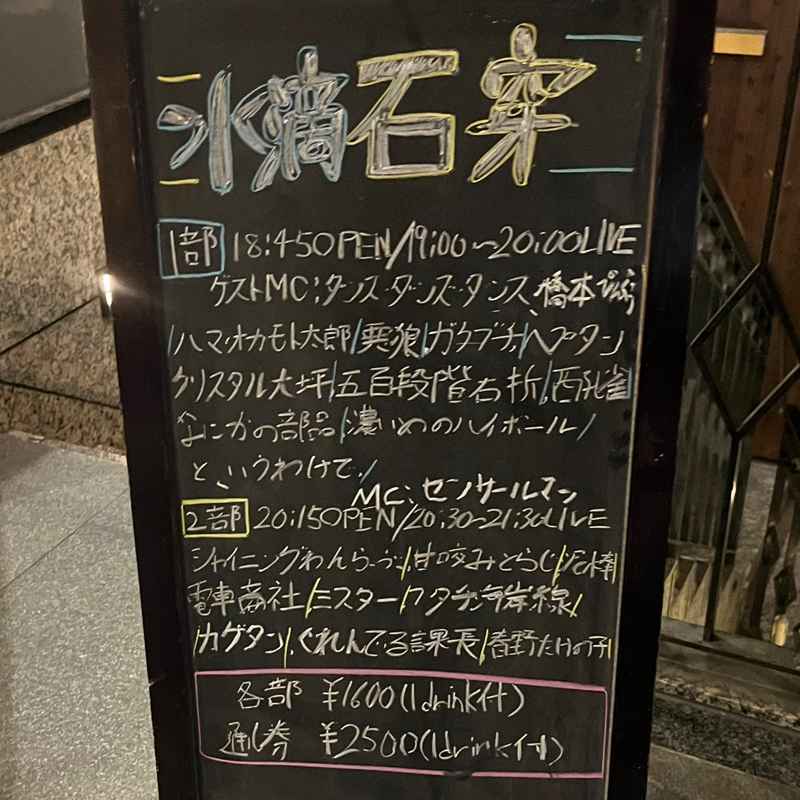 水滴石穿
1部 18:45OPEN/19:00〜20:00LIVE
ゲストMC:ダンス・ダンズ・ダンス、橋本
/ハマ・オカモト太郎/悪狼/ガクヅチ/ヘプタン
クリスタル大坪/五百段階右折/西孔雀
なにかの部品/濃いめのハイボール/
というわけで/
MC:センサールマン
2部 20:15OPEN/20:30〜21:30LIVE
シャイニングわんらーぶ/甘咬みとらじ/泥棒
電車商社/ミスター/ワタナ海岸線/
/カゲタン/ぐれんでる課長/春野たけの子
各部 ¥1600(1drink付)
通し券 ¥2500(1drink付)